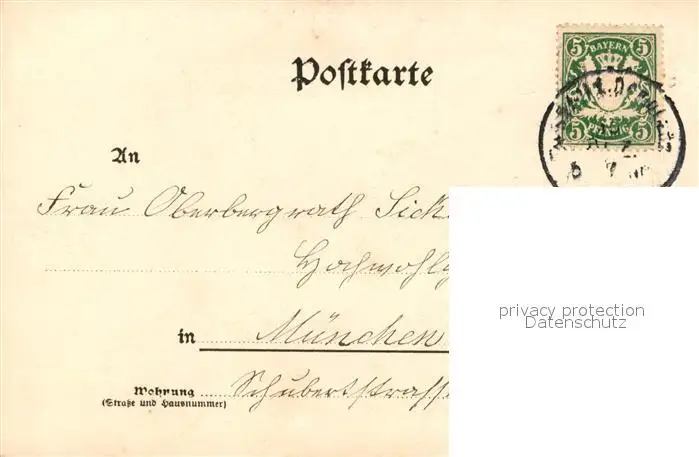 5 BAYERN 5
5 PFENNIG 5
Postkarte
An
Frau Oberbergrath Sick
Hochwohlg
in München
Wohnung Schubertstrasse
(Straße und Hausnummer)
privacy protection
Datenschutz